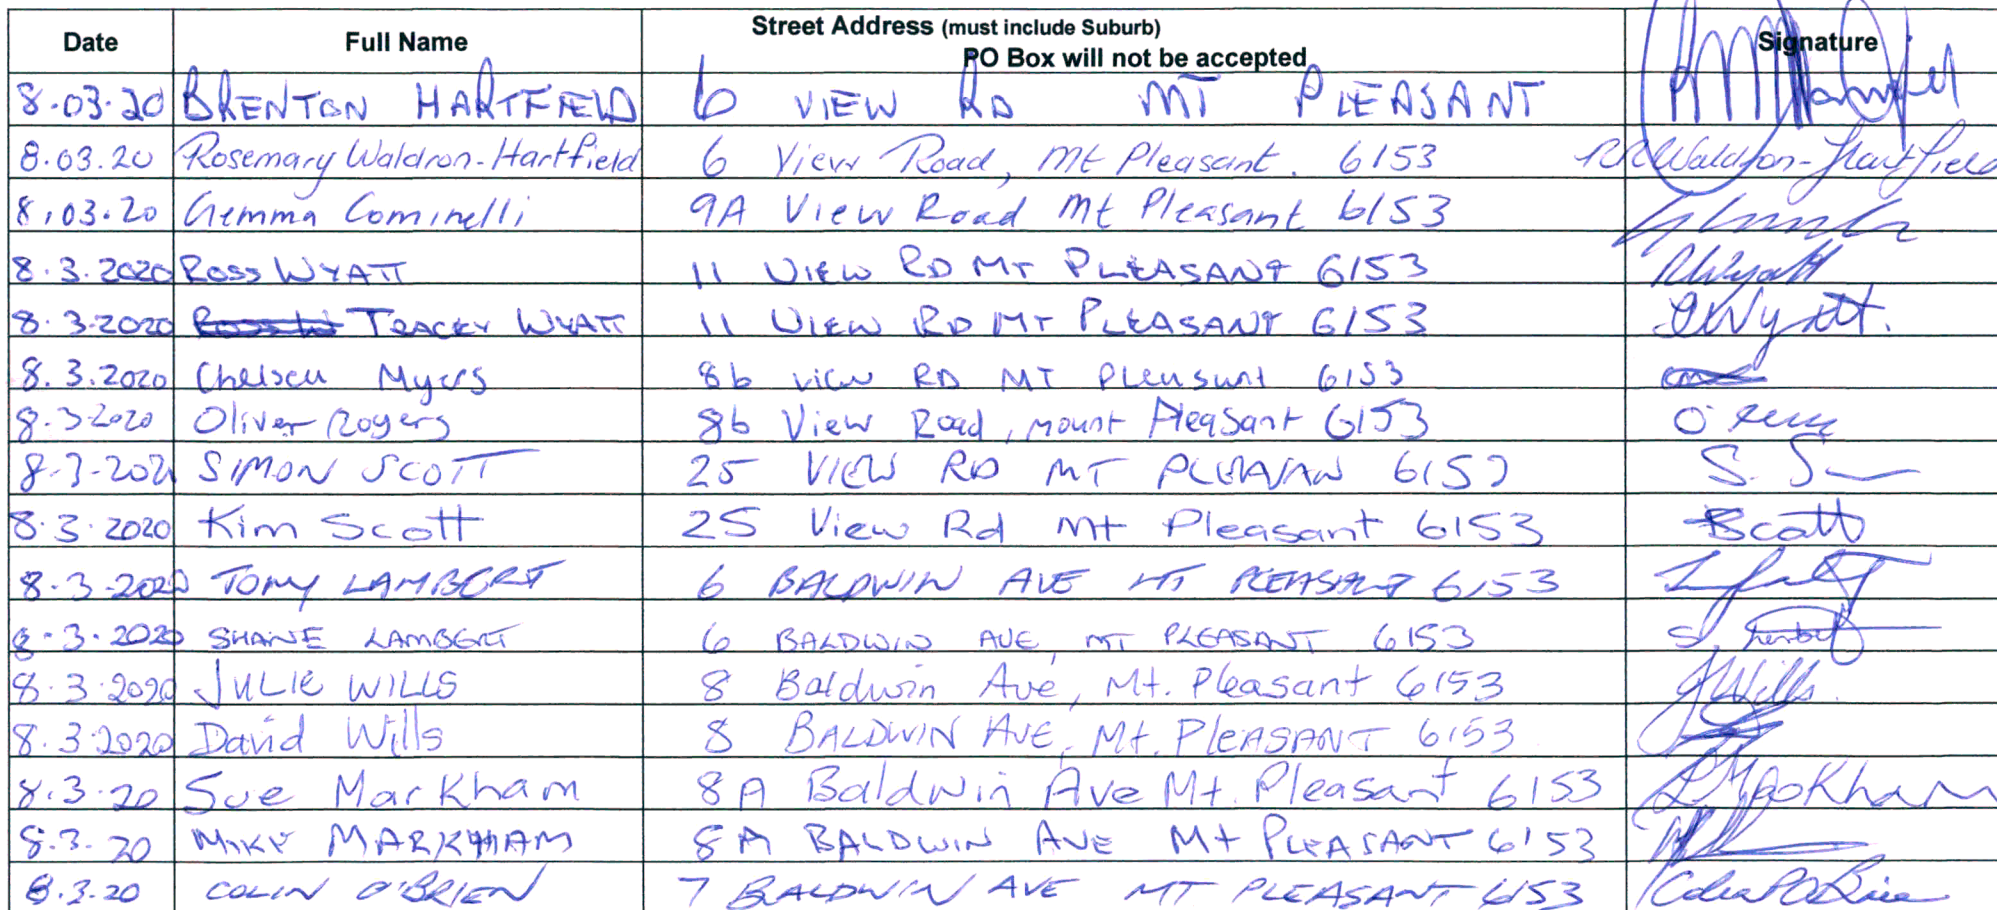 Date Full Name Street Address (must include Suburb) Signature
PO Box will not be accepted
8.03.20 BRENTON HARTFIELD 6 VIEW RD MT PLEASANT
8.03.20 Rosemary Waldron-Hartfield 6 View Road, Mt Pleasant. 6153 Waldron-Hartfield
8.03.20 Gemma Cominelli 9A View Road Mt Pleasant 6153
8.3.2020 ROSS WYATT 11 VIEW RD MT PLEASANT 6153 RWyatt
8.3.2020 TRACEY WYATT 11 VIEW RD MT PLEASANT 6153 Wyatt.
8.3.2020 Chelsea Myers 8b view RD MT Pleasant 6153
8.3.2020 Oliver Rogers 8b View Road, Mount Pleasant 6153
8.3.202 SIMON SCOTT 25 VIEW RD MT PLEASAN 6153 S. S
8.3.2020 Kim Scott 25 View Rd Mt Pleasant 6153 Scott
8.3.2020 TONY LAMBERT 6 BALDWIN AVE MT PLEASANT 6153
8.3.2020 SHANE LAMBERT 6 BALDWIN AVE, MT PLEASANT 6153 S.
8.3.2020 JULIE WILLS 8 Baldwin Ave, Mt. Pleasant 6153 JWills.
8.3.2020 David Wills 8 BALDWIN AVE, Mt. PLEASANT 6153
8.3.20 Sue Markham 8A Baldwin Ave Mt. Pleasant 6153 SMarkham
8.3.20 MIKE MARKHAM 8A BALDWIN AVE Mt PLEASANT 6153
8.3.20 COLIN O'BRIEN 7 BALDWIN AVE MT PLEASANT 6153